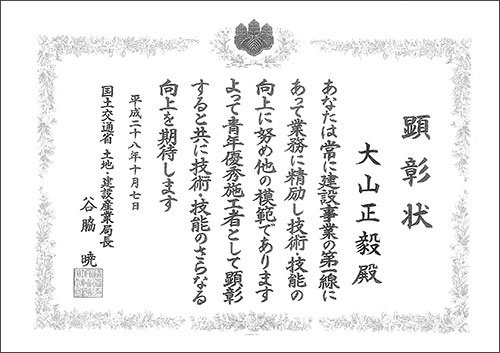 顕彰状
大山正毅殿
あなたは常に建設事業の第一線に
あって業務に精励し技術・技能の
向上に努め他の模範であります
よって青年優秀施工者として顕彰
すると共に技術・技能のさらなる
向上を期待します
平成二十八年十月七日
国土交通省 土地・建設産業局長
谷脇 暁